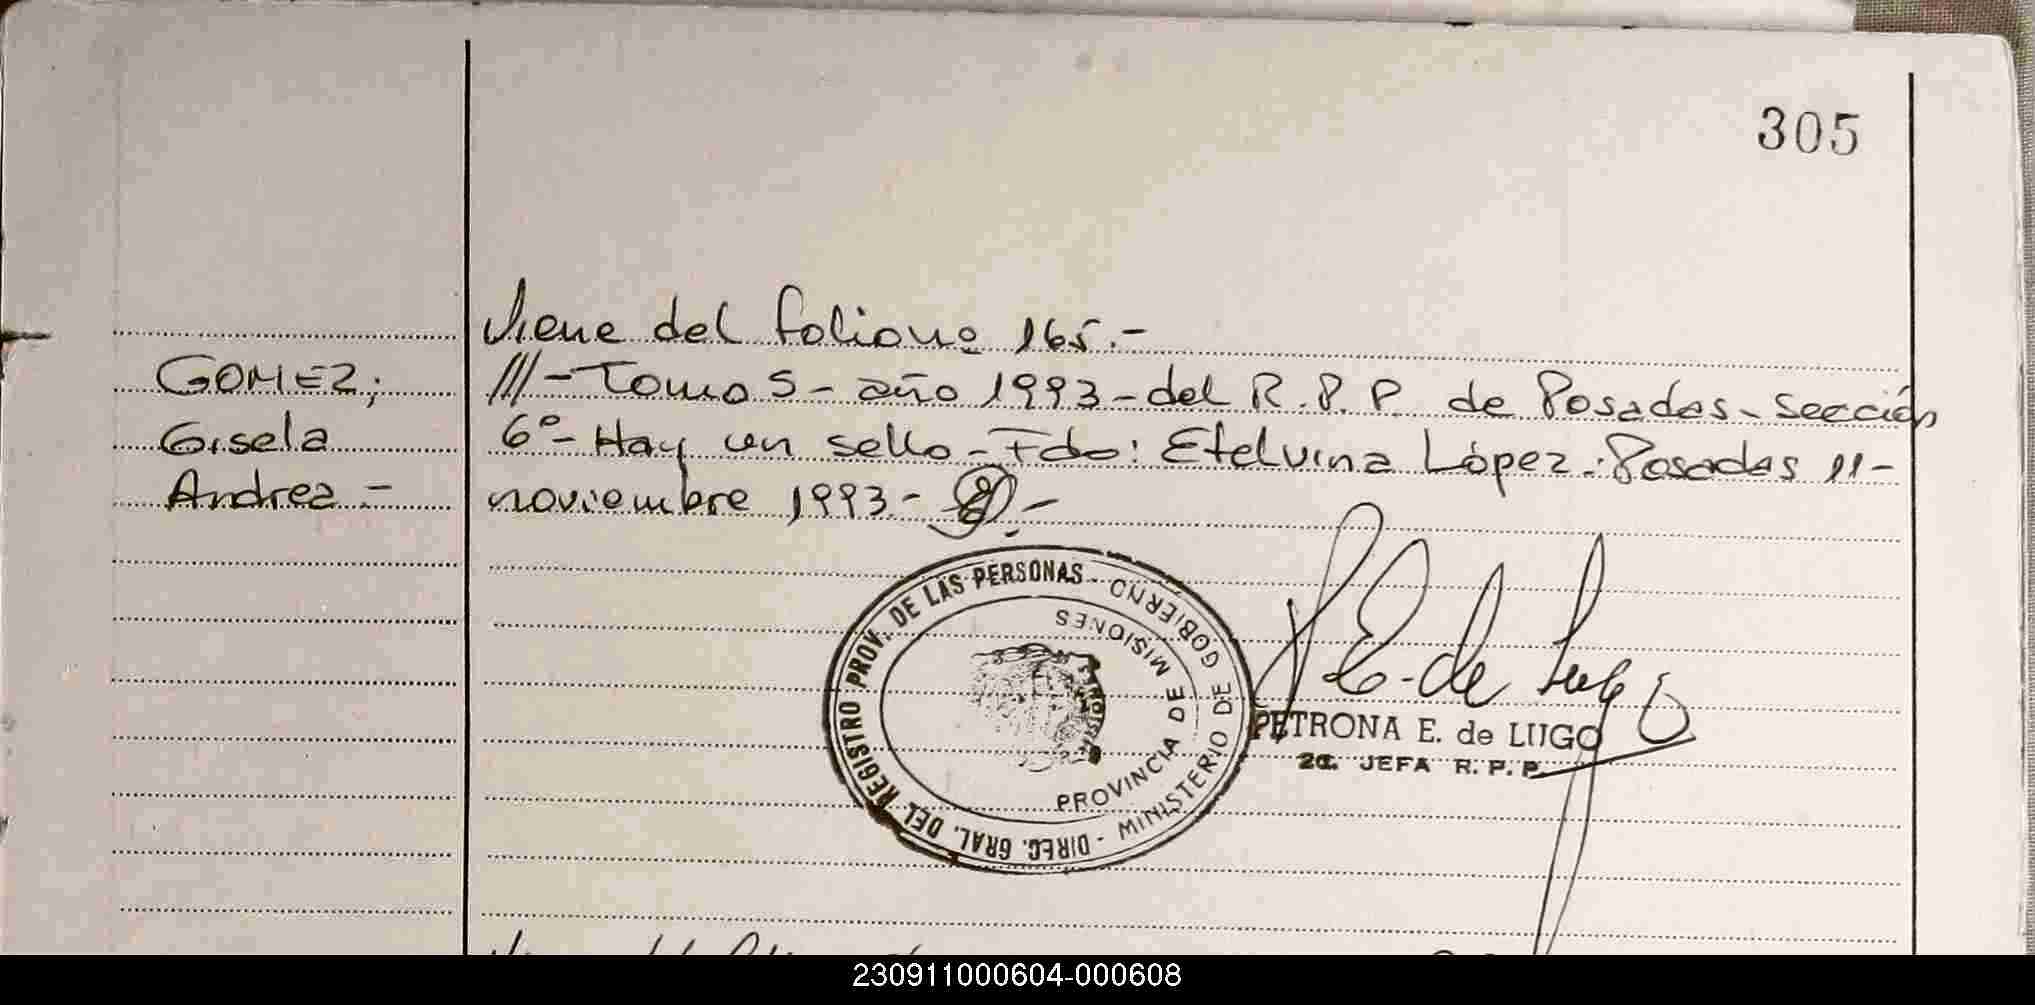 305
Viene del folio nº 165.-
GOMEZ;
Gisela
Andrea.-
///-Tomo 5- año 1993-del R.P.P. de Posadas-Sección
6º- Hay un sello-Fdo: Etelvina López.-Posadas 11-
noviembre 1993-
DIREC. GRAL. DEL REGISTRO PROV. DE LAS PERSONAS
MINISTERIO DE GOBIERNO
PROVINCIA DE MISIONES
P E. de Lugo
PETRONA E. de LUGO
2a. JEFA R. P. P.
230911000604-000608